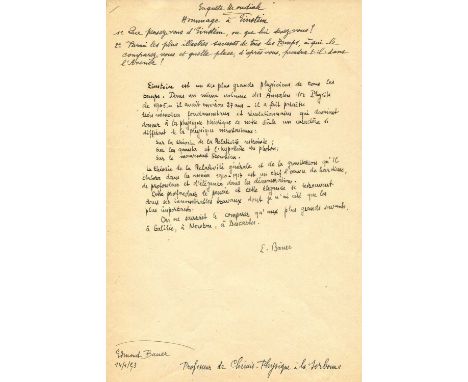 Enquête Mondiale
Hommage à Einstein
1° Que pensez-vous d'Einstein, ou que lui
2° Parmi les plus illustres savants de tous les temps, à qui le
comparez vous et quelle place, d'après vous, prendra-t-il dans
l'Avenir?
Einstein est un des plus grands physiciens de tous les
temps. Dans un même volume des Annalen der Physik
de 1905 il avait environ 27 ans il a fait paraître
trois mémoires et révolutionnaires qui devaient
donner à la physique de notre siècle un caractère si
différent de la physique
sur la théorie de la Relativité restreinte;
sur les quanta et l'hypothèse du photon;
sur le mouvement Brownien.
La théorie de la Relativité générale et de la gravitation qu'il
élabora dans les années est un chef d'œuvre de hardiesse,
de profondeur et d'élégance dans les démonstrations.
Cette profondeur de pensée et cette élégance se retrouvent
dans ses innombrables travaux dont je n'ai cité que les
plus importants.
On ne saurait le comparer qu'aux plus grands savants,
à Galilée, à Newton, à Descartes.
E. Bauer
Edmond Bauer
Professeur de Chimie-Physique à la Sorbonne